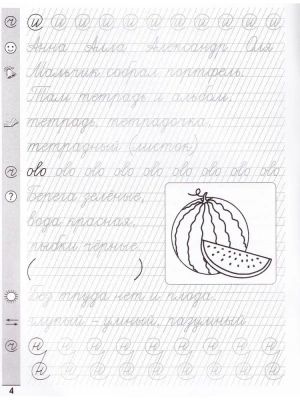 и и и и и и и и и и и и
Анна Алла Александр Оля
Мальчик собрал портфель.
Там тетрадь и альбом,
тетрадь, тетрадочка,
тетрадный (листок)
ово ово ово ово ово ово ово ово ово
?
Берега зелёные,
вода красная,
рыбки чёрные.
( )
Без труда нет и плода.
глупый – умный, разумный
н н н н н н н н н
н н н н н н н н н
4